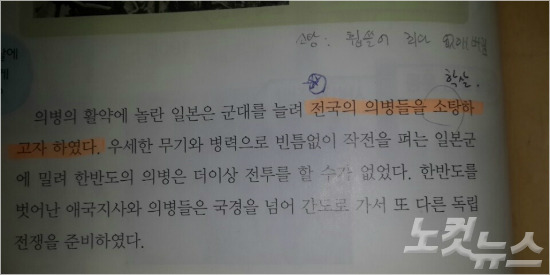 소탕 : 휩쓸어 죄다 없애버림
학살.
의병의 활약에 놀란 일본은 군대를 늘려 전국의 의병들을 소탕하
고자 하였다. 우세한 무기와 병력으로 빈틈없이 작전을 펴는 일본군
에 밀려 한반도의 의병은 더이상 전투를 할 수가 없었다. 한반도를
벗어난 애국지사와 의병들은 국경을 넘어 간도로 가서 또 다른 독립
전쟁을 준비하였다.
노컷뉴스